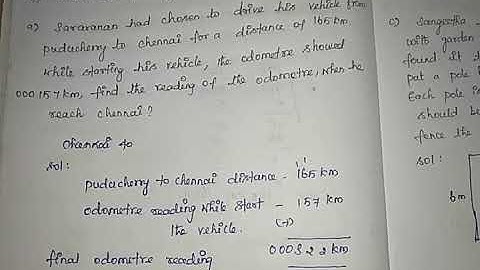 a) Saravanan had chosen to drive his vehicle from
puducherry to chennai for a distance of 165 km.
while starting his vehicle, the odometre showed
000157 km, find the reading of the odometre, when he
reach chennai?
Chennai 40
sol:
puducherry to chennai distance - 165 km
odometre reading while start - 157 km
the vehicle. (+)
000322 km
final odometre reading
c) Sangeetha
with garden
found it
put a pole
Each pole is
should be
fence the
sol:
6m